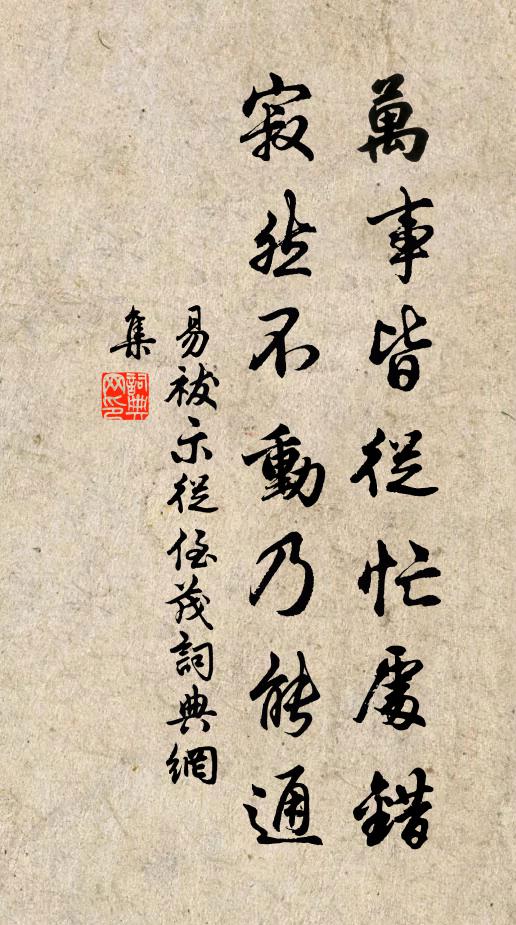 萬事皆從忙處錯
寂然不動乃能通
易祓示從侄茂詞典網
集
詞典
网印